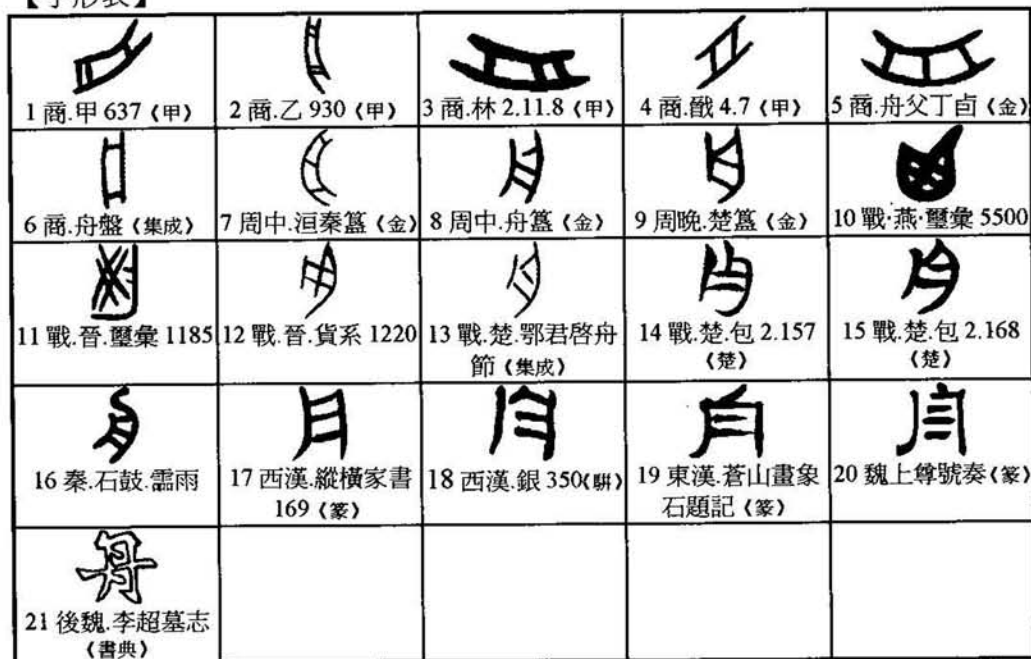 【字形表】
1 商.甲 637《甲》
2 商.乙 930《甲》
3 商.林 2.11.8《甲》
4 商.戩 4.7《甲》
5 商.舟父丁卣《金》
6 商.舟盤《集成》
7 周中.洹秦簋《金》
8 周中.舟簋《金》
9 周晚.楚簋《金》
10 戰·燕·璽彙 5500
11 戰.晉.璽彙 1185
12 戰.晉.貨系 1220
13 戰.楚.鄂君啓舟
節《集成》
14 戰.楚.包 2.157
《楚》
15 戰.楚.包 2.168
《楚》
16 秦.石鼓.霝雨
17 西漢.縱橫家書
169《篆》
18 西漢.銀 350《駢》
19 東漢.蒼山畫象
石題記《篆》
20 魏上尊號奏《篆》
21 後魏.李超墓志
《書典》